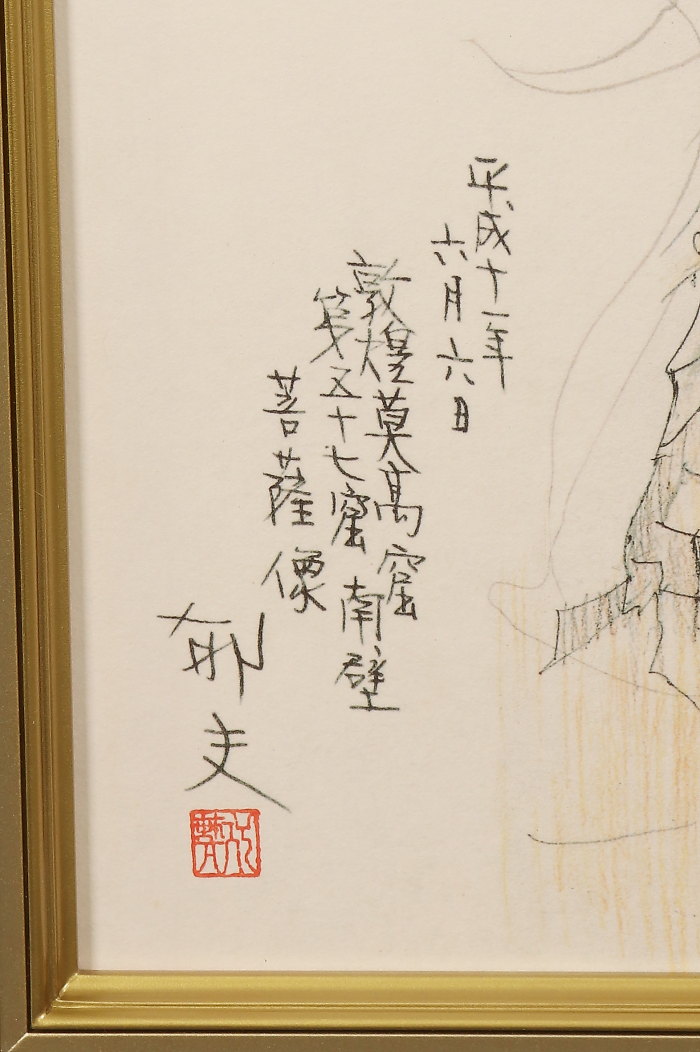 平成十一年
六月六日
敦煌莫高窟
第五十七窟南壁
菩薩像
郁夫